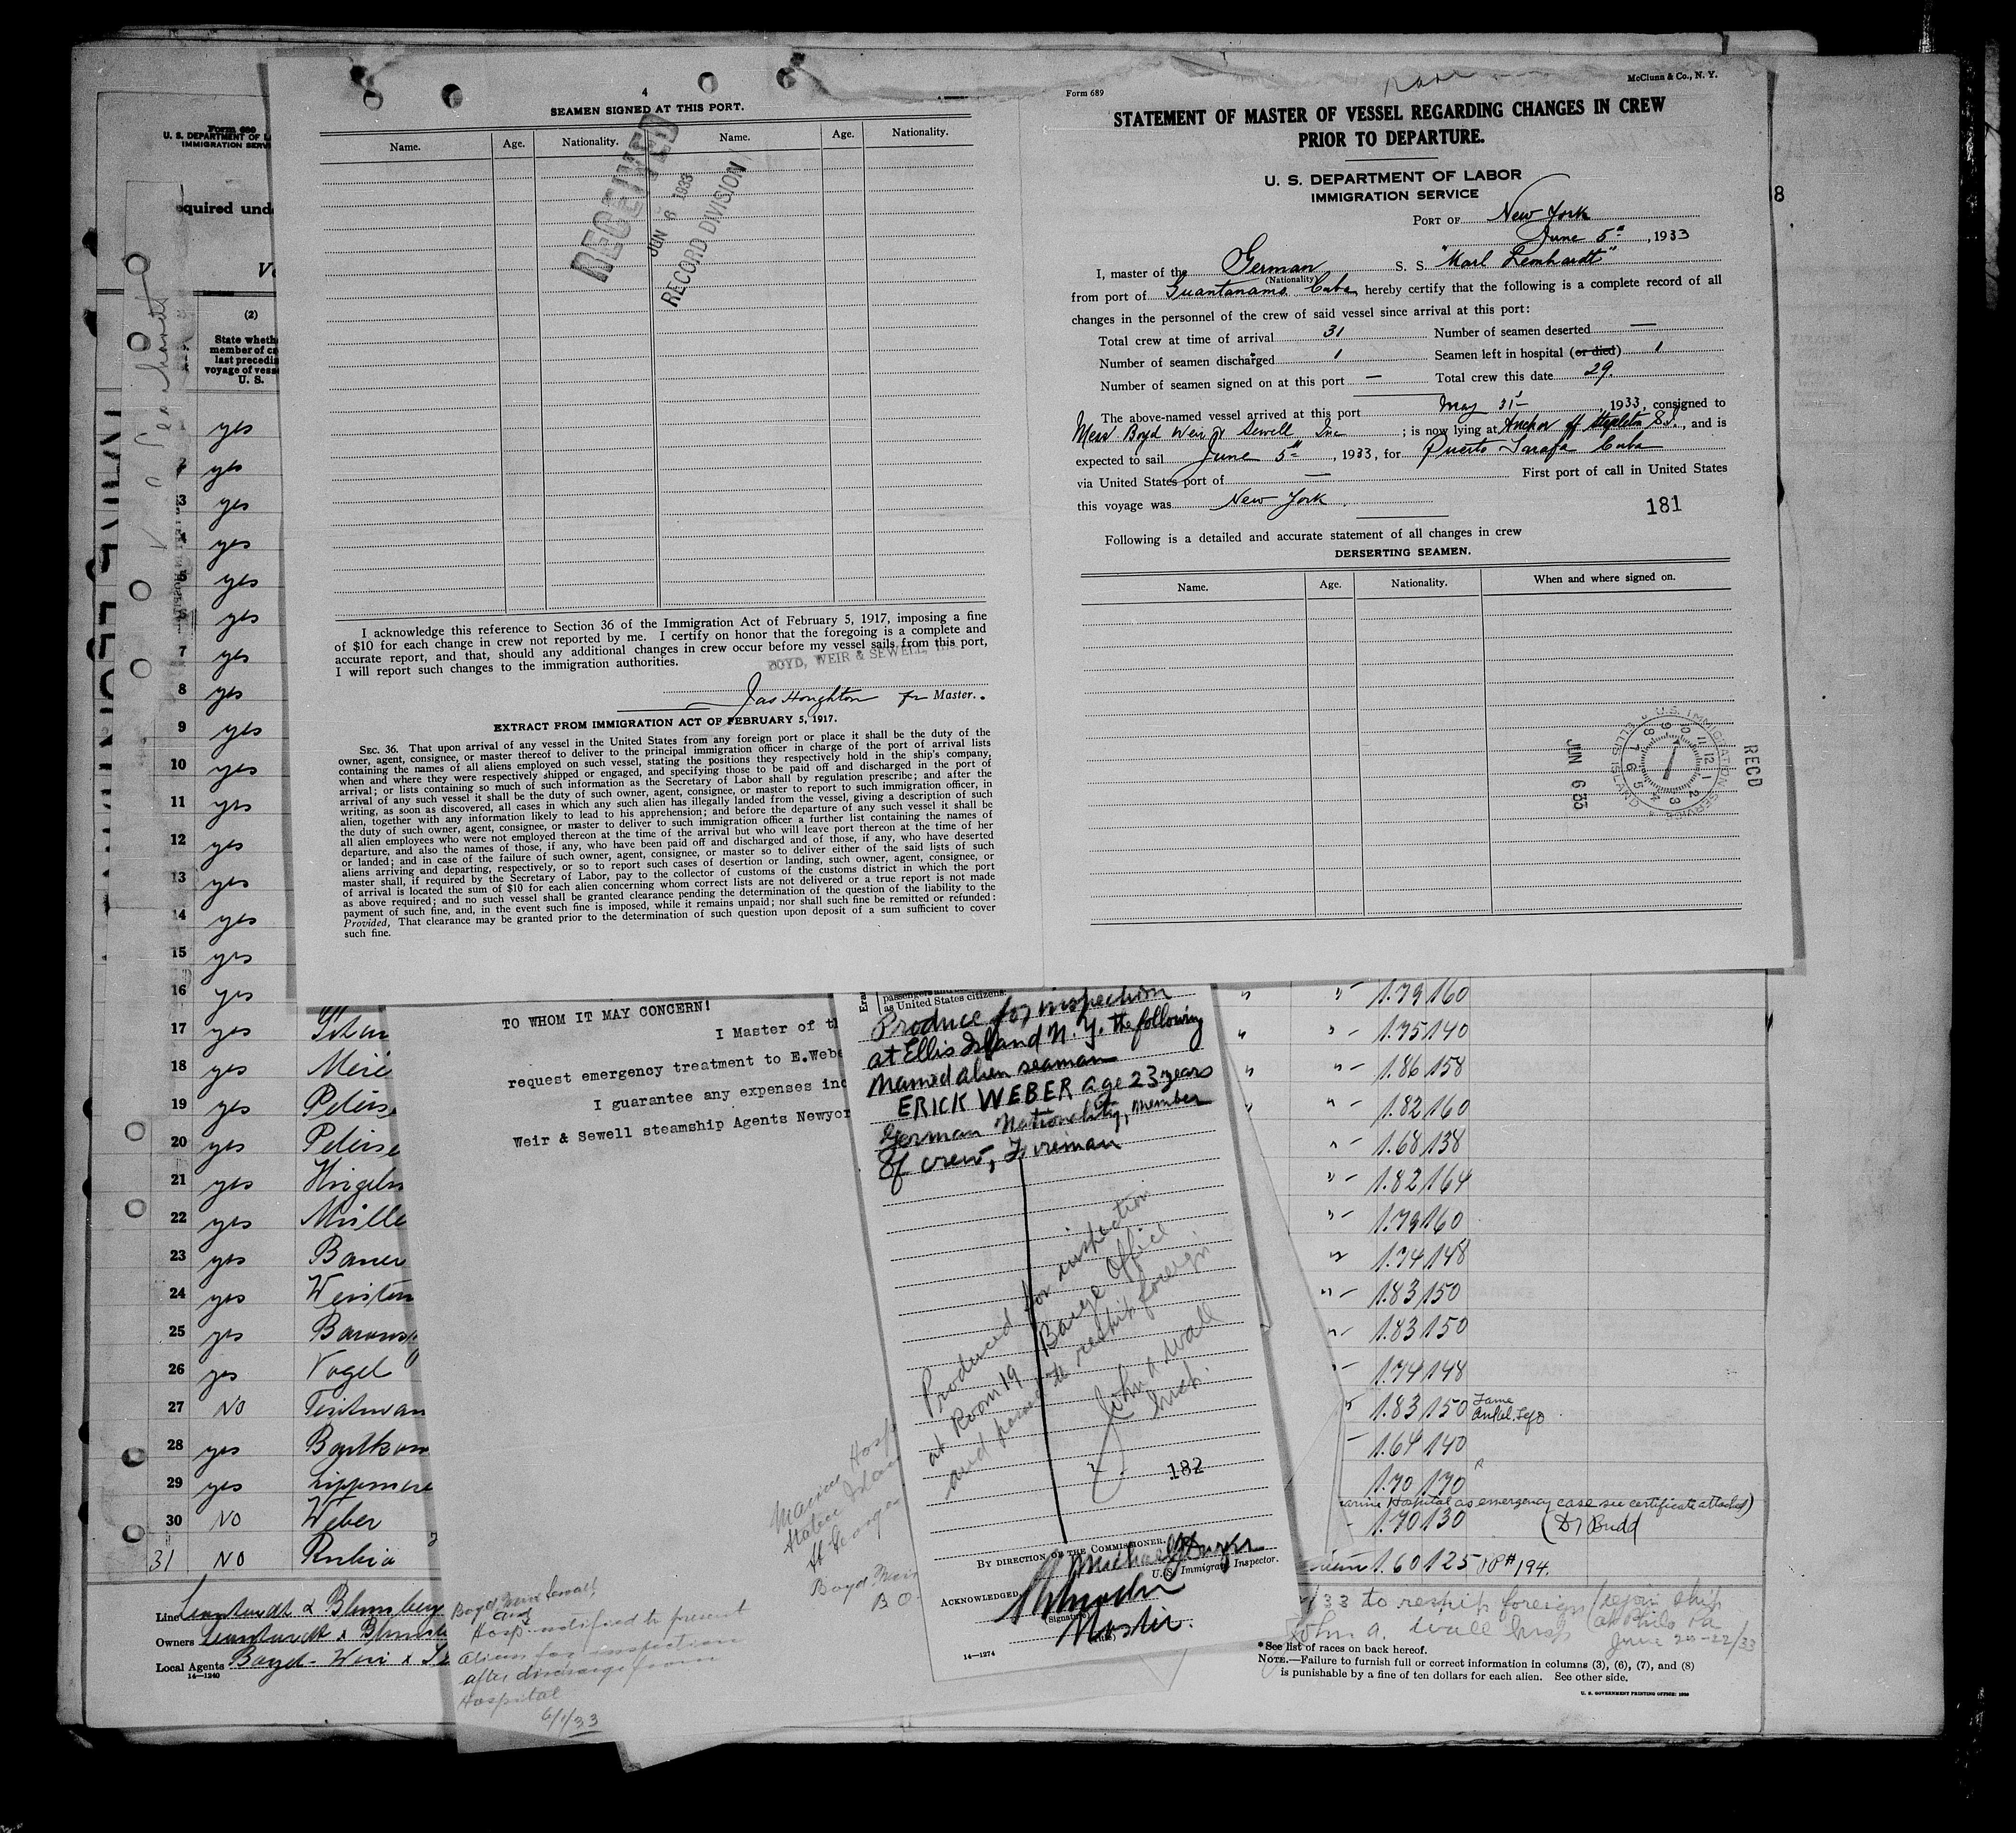 4
SEAMEN SIGNED AT THIS PORT.
Name. Age. Nationality. Name. Age. Nationality.
RECEIVED
JUN 6 1933
RECORD DIVISION
I acknowledge this reference to Section 36 of the Immigration Act of February 5, 1917, imposing a fine
of $10 for each change in crew not reported by me. I certify on honor that the foregoing is a complete and
accurate report, and that, should any additional changes in crew occur before my vessel sails from this port,
I will report such changes to the immigration authorities.
BOYD, WEIR & SEWELL, INC.
Jas Houghton for Master.
EXTRACT FROM IMMIGRATION ACT OF FEBRUARY 5, 1917.
SEC. 36. That upon arrival of any vessel in the United States from any foreign port or place it shall be the duty of the
owner, agent, consignee, or master thereof to deliver to the principal immigration officer in charge of the port of arrival lists
containing the names of all aliens employed on such vessel, stating the positions they respectively hold in the ship's company,
when and where they were respectively shipped or engaged, and specifying those to be paid off and discharged in the port of
arrival; or lists containing so much of such information as the Secretary of Labor shall by regulation prescribe; and after the
arrival of any such vessel it shall be the duty of such owner, agent, consignee, or master to report to such immigration officer, in
writing, as soon as discovered, all cases in which any such alien has illegally landed from the vessel, giving a description of such
alien, together with any information likely to lead to his apprehension; and before the departure of any such vessel it shall be
the duty of such owner, agent, consignee, or master to deliver to such immigration officer a further list containing the names of
all alien employees who were not employed thereon at the time of the arrival but who will leave port thereon at the time of her
departure, and also the names of those, if any, who have been paid off and discharged and of those, if any, who have deserted
or landed; and in case of the failure of such owner, agent, consignee, or master so to deliver either of the said lists of such
aliens arriving and departing, respectively, or so to report such cases of desertion or landing, such owner, agent, consignee, or
master shall, if required by the Secretary of Labor, pay to the collector of customs of the customs district in which the port
of arrival is located the sum of $10 for each alien concerning whom correct lists are not delivered or a true report is not made
as above required; and no such vessel shall be granted clearance pending the determination of the question of the liability to the
payment of such fine, and, in the event such fine is imposed, while it remains unpaid; nor shall such fine be remitted or refunded:
Provided, That clearance may be granted prior to the determination of such question upon deposit of a sum sufficient to cover
such fine.
Form 689
McClunn & Co., N. Y.
STATEMENT OF MASTER OF VESSEL REGARDING CHANGES IN CREW
PRIOR TO DEPARTURE.
U. S. DEPARTMENT OF LABOR
IMMIGRATION SERVICE
PORT OF New York
June 5th, 1933
I, master of the German S. S. "Karl Leonhardt"
(Nationality)
from port of Guantanamo Cuba hereby certify that the following is a complete record of all
changes in the personnel of the crew of said vessel since arrival at this port:
Total crew at time of arrival 31 Number of seamen deserted —
Number of seamen discharged 1 Seamen left in hospital (or died) 1
Number of seamen signed on at this port — Total crew this date 29.
The above-named vessel arrived at this port May 31st, 1933, consigned to
Mess Boyd Weir & Sewell Inc; is now lying at Anchor off Stapleton S.I., and is
expected to sail June 5th, 1933, for Puerto Tarafa Cuba
via United States port of — First port of call in United States
this voyage was New York.
181
Following is a detailed and accurate statement of all changes in crew
DERSERTING SEAMEN.
Name. Age. Nationality. When and where signed on.
U.S. IMMIGRATION SERVICE
ELLIS ISLAND
JUN 6 33
RECD
8
Form 680
U. S. DEPARTMENT OF L
IMMIGRATION SERV
equired und
(2)
State wheth
member of c
last precedi
voyage of vess
U. S.
yes
2 yes
3 yes
4 yes
5 yes
6 yes
7 yes
8 yes
9 yes
10 yes
11 yes
12 yes
13 yes
14 yes
15 yes
16 yes
17 yes
18 yes
19 yes Peters
20 yes Peterse
21 yes
22 yes Mülle
23 yes Bauer
24 yes
25 yes
26 yes Vogel
27 NO
28 yes
29 yes
30 NO Weber
31 NO Rubio
Line Leonhardt & Blumberg
Owners Leonhardt & Blumbe
Local Agents Boyd-Weir & Se
14—1240
TO WHOM IT MAY CONCERN!
I Master of th
request emergency treatment to E.Webe
I guarantee any expenses inc
Weir & Sewell steamship Agents Newyor
Marine Hosp
Staten Islan
St George
Boyd Weir
Boyd Weir Sewall
and
Hosp. notified to present
aliens for inspection
after discharge from
Hospital
6/1/33
passengers and
as United States citizens.
Produce for inspection
at Ellis Island N.Y. the following
Named alien seaman
ERICK WEBER age 23 years
German Nationality, member
of crew, Fireman
Produced for inspection
at Room 19 Barge Office
and passed to reship foreign
John A. Wall
Insp.
182
BY DIRECTION OF THE COMMISSIONER.
U. S. Immigrant Inspector.
ACKNOWLEDGED
(Signature)
Master.
14—1274
1.79 160
1.75 140
1.86 158
1.82 160
1.68 138
1.82 164
1.79 160
1.74 148
1.83 150
1.83 150
1.74 148
1.83 150
1.64 140
1.70 170
arine Hospital as emergency case see certificate attached)
1.70 130 (Dr Budd
1.60 125 #194.
/33 to reship foreign (rejoin ship
John A. Wall Insp at Phila Pa
June 20-22/33
*See list of races on back hereof.
NOTE.—Failure to furnish full or correct information in columns (3), (6), (7), and (8)
is punishable by a fine of ten dollars for each alien. See other side.
U. S. GOVERNMENT PRINTING OFFICE